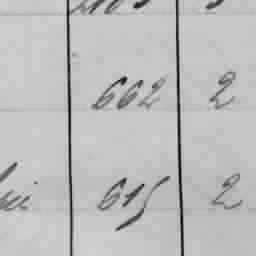 662 2
615 2